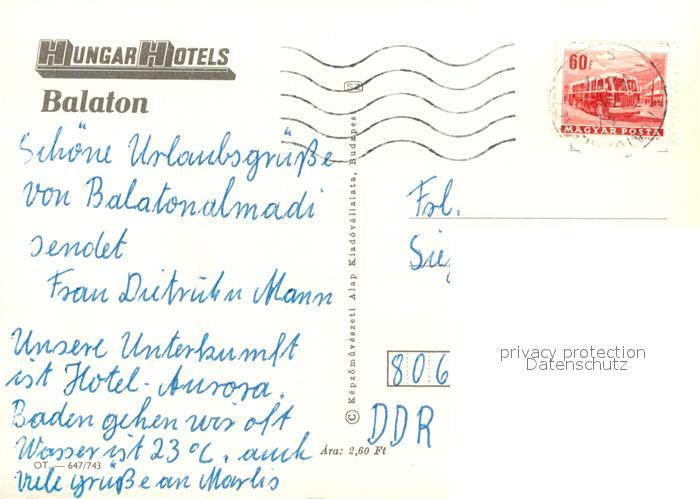 HUNGAR HOTELS
Balaton
Schöne Urlaubsgrüße
von Balatonalmadi
sendet
Frau Dietrich u Mann
Unsere Unterkunft
ist Hotel-Aurora.
Baden gehen wir oft
Wasser ist 23°C, auch
viele grüße an Marlis
OT. — 647/743
© Képzőművészeti Alap Kiadóvállalata, Budapest
Ára: 2,60 Ft
60f
MAGYAR POSTA
Frl.
806
DDR
privacy protection
Datenschutz